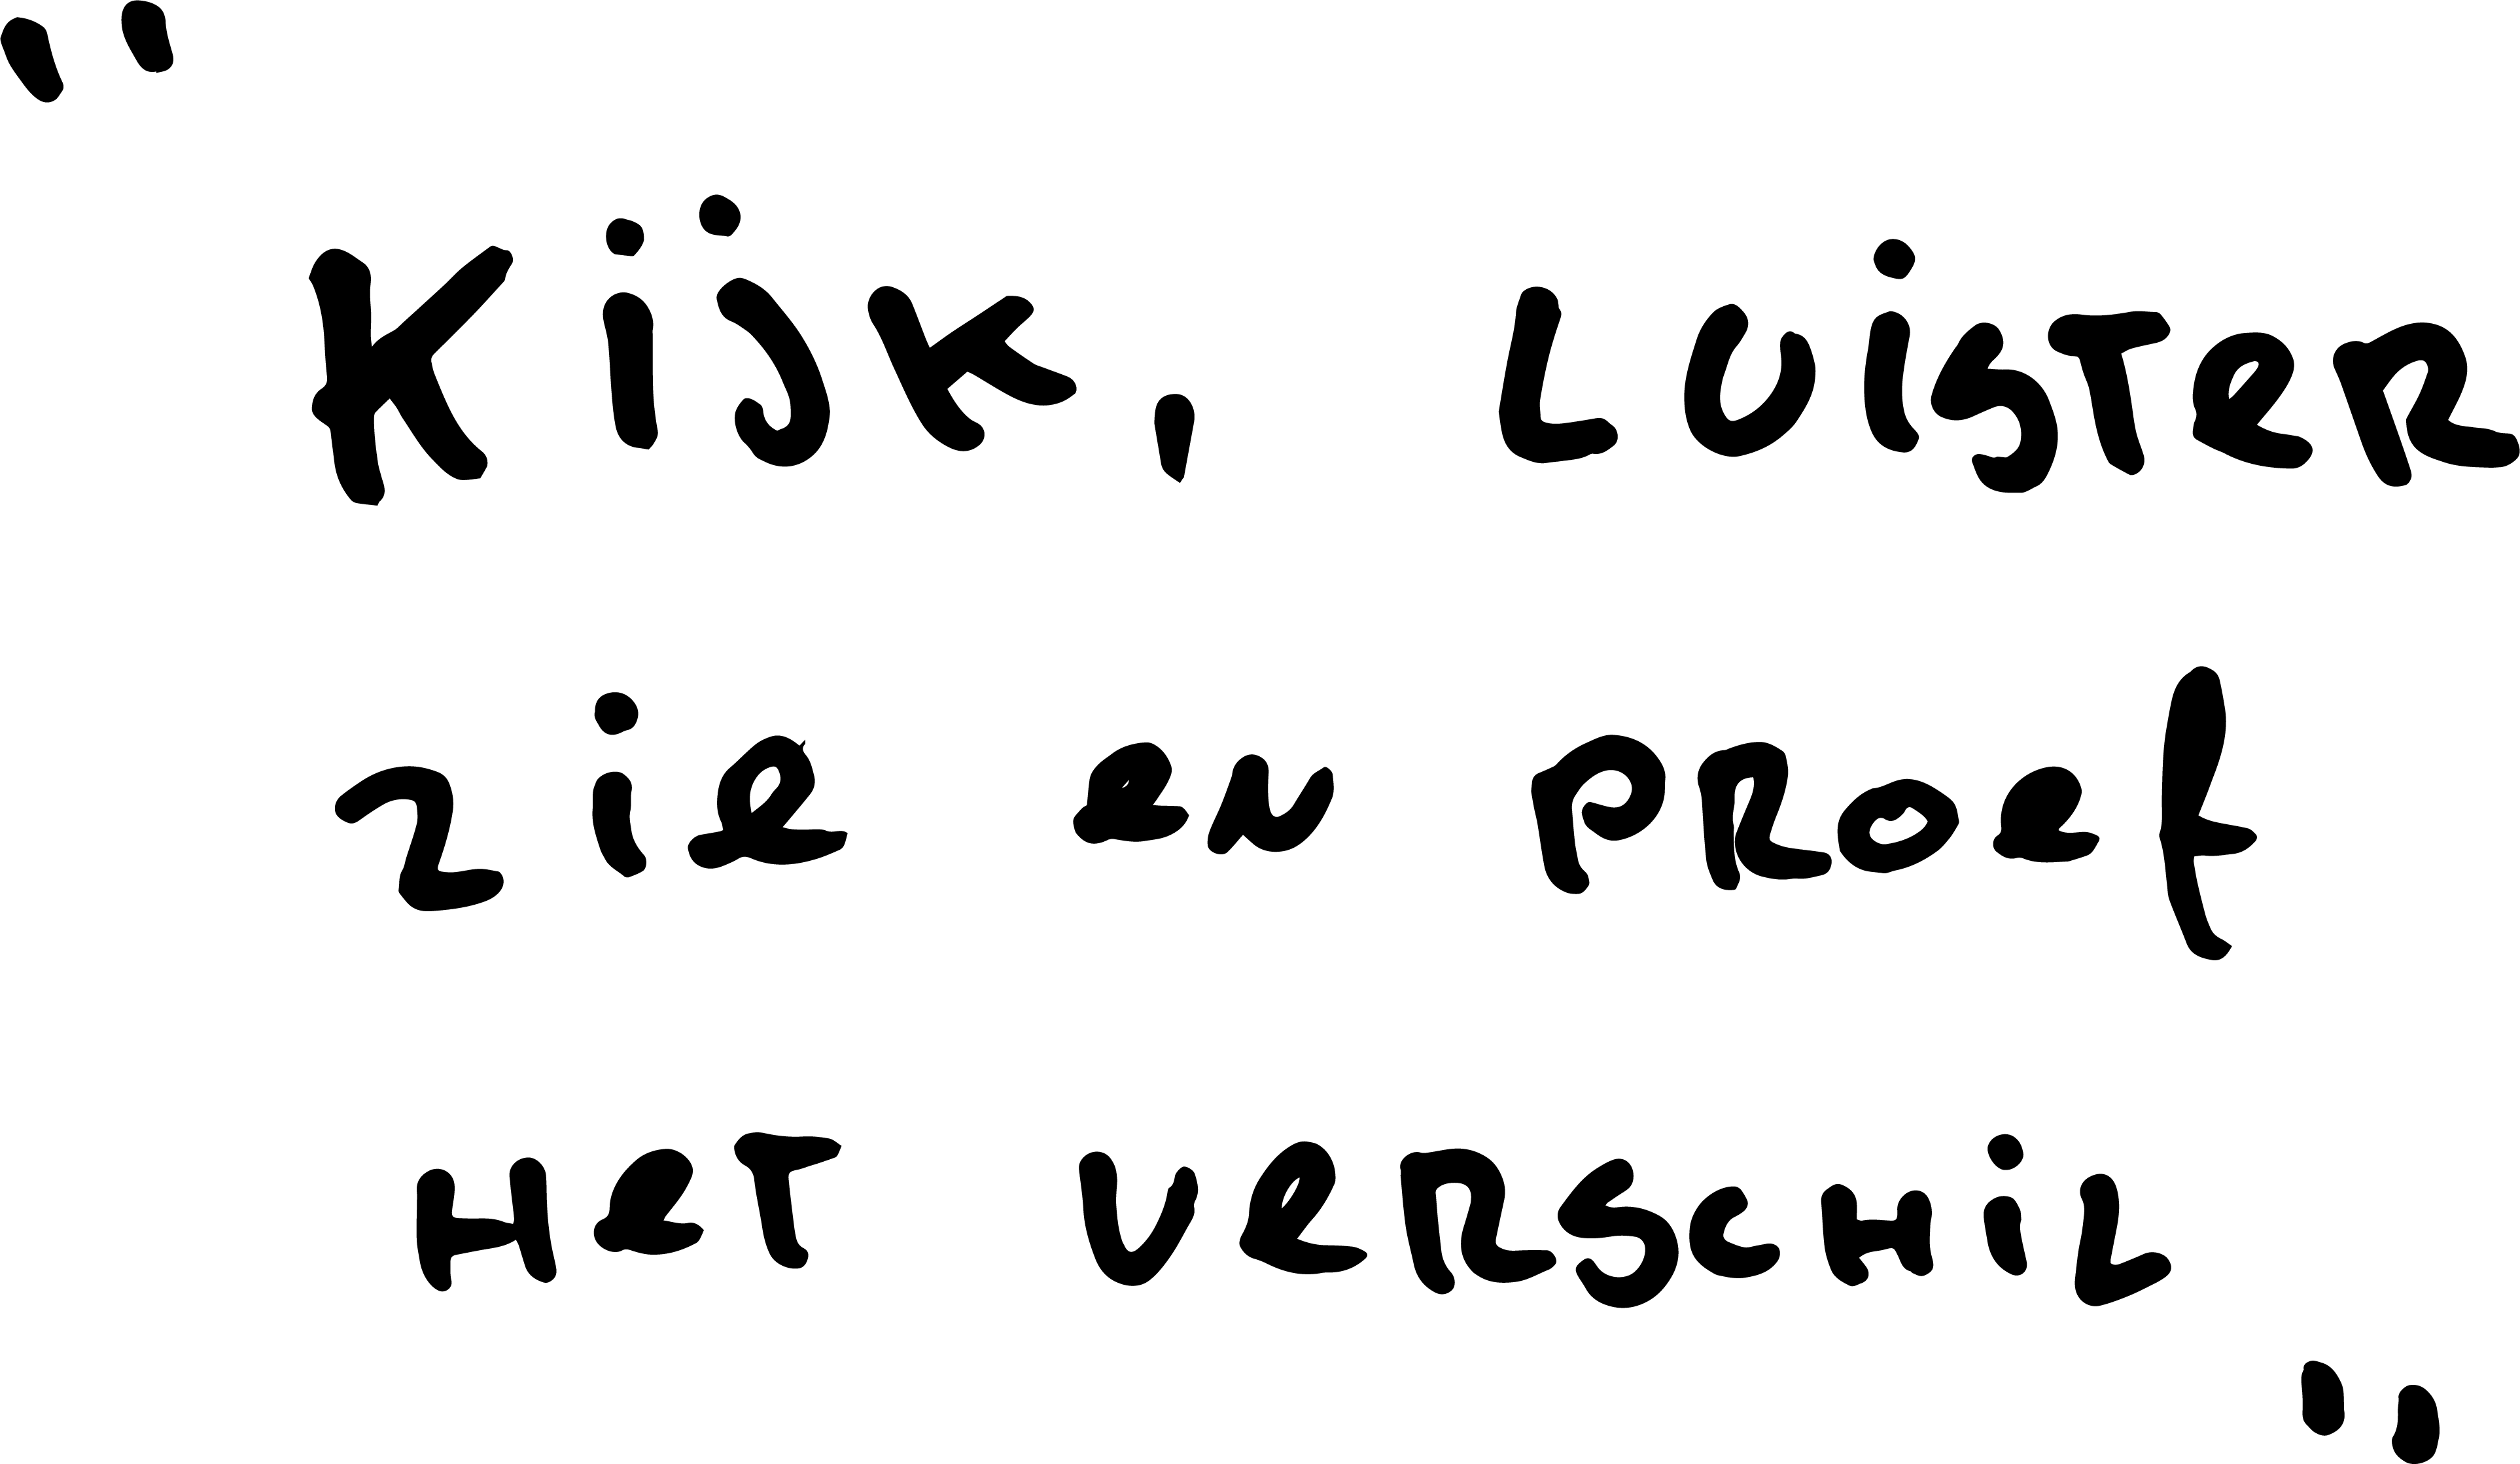 "Kijk, LuisTeR
zie en PRoef
HeT VeRScHiL"